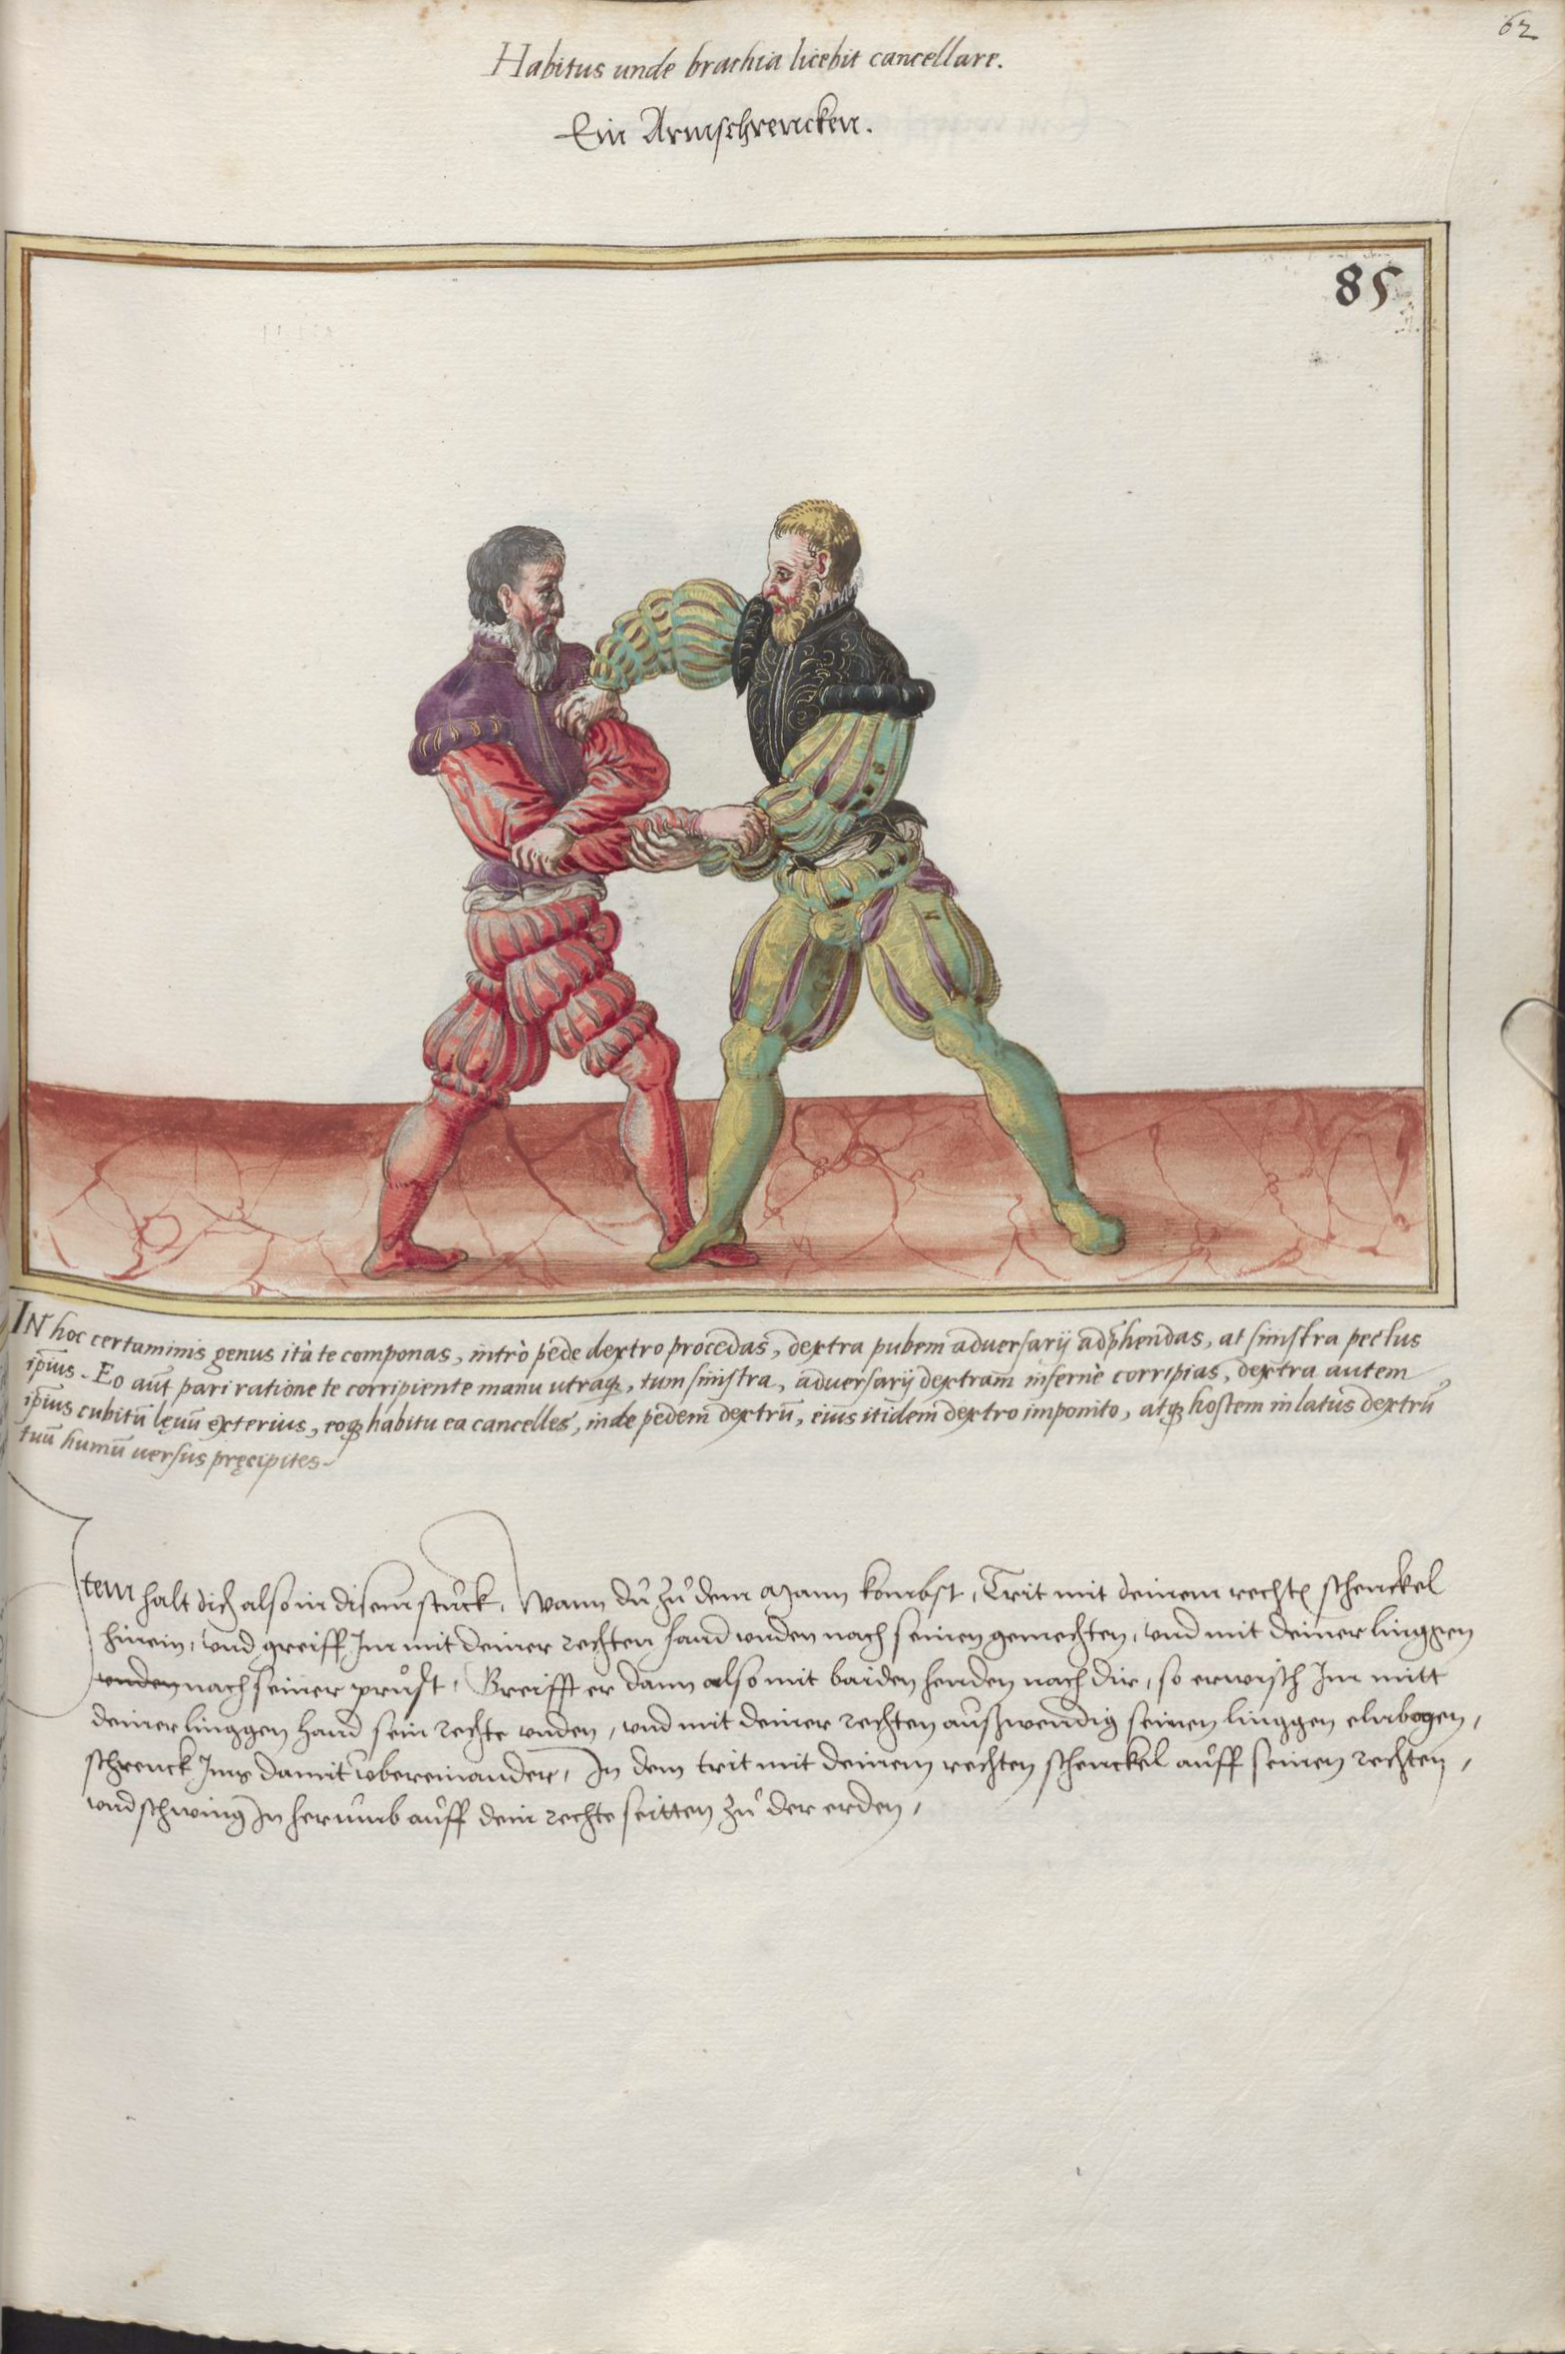 62
Habitus unde brachia licebit cancellare.
Ein Armschrencken.
85
IN hoc certaminis genus ità te componas, intrò pede dextro procedas, dextra pubem adversarij adp̄hendas, at sinistra pectus
ip̄ius. Eo aut̄ pari ratione te corripiente manu utraq;, tum sinistra, adversarij dextram̄ infernè corripias, dextra autem
ip̄ius cubitū lęuū exterius, eoq; habitu ea cancelles, inde pedem dextrū, eius itidem dextro imponito, atq; hostem in latus dextrū
tuū humū versus pręcipites.
Item halt dich also in disem stuckh, Wann dů zů dem Mann kombst, Trit mit deinem rechtn schenckel
hinein, vnd greiff Im mit deiner rechten hand vnden nach seinen gemechten, vnd mit deiner linggen
vnden nach seiner průst, Greifft er dann also mit baiden henden nach dir, so erwisch Im mitt
deiner linggen hand sein rechte vnden, vnd mit deiner rechten aůßwendig seinen linggen elnbogen,
schrenck Ims damit vbereinander, In dem trit mit deinem rechten schenckel aůff seinen rechten,
vnd schwing In herumb aůff dein rechte seitten zů der erden,